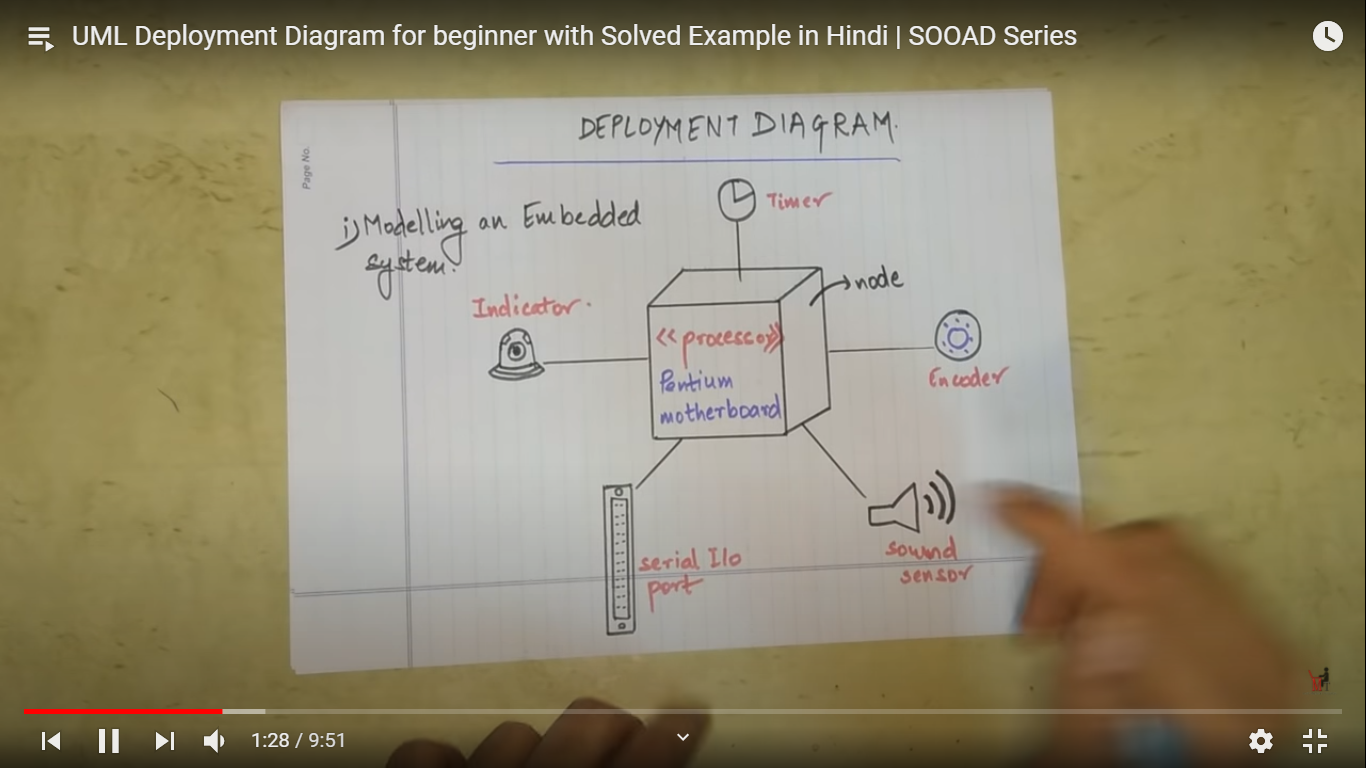 UML Deployment Diagram for beginner with Solved Example in Hindi | SOOAD Series
Page No.
DEPLOYMENT DIAGRAM.
i) Modelling an Embedded
system.
Timer
node
Indicator.
<<processor>>
Pentium
motherboard
Encoder
serial I/o
port
sound
sensor
1:28 / 9:51